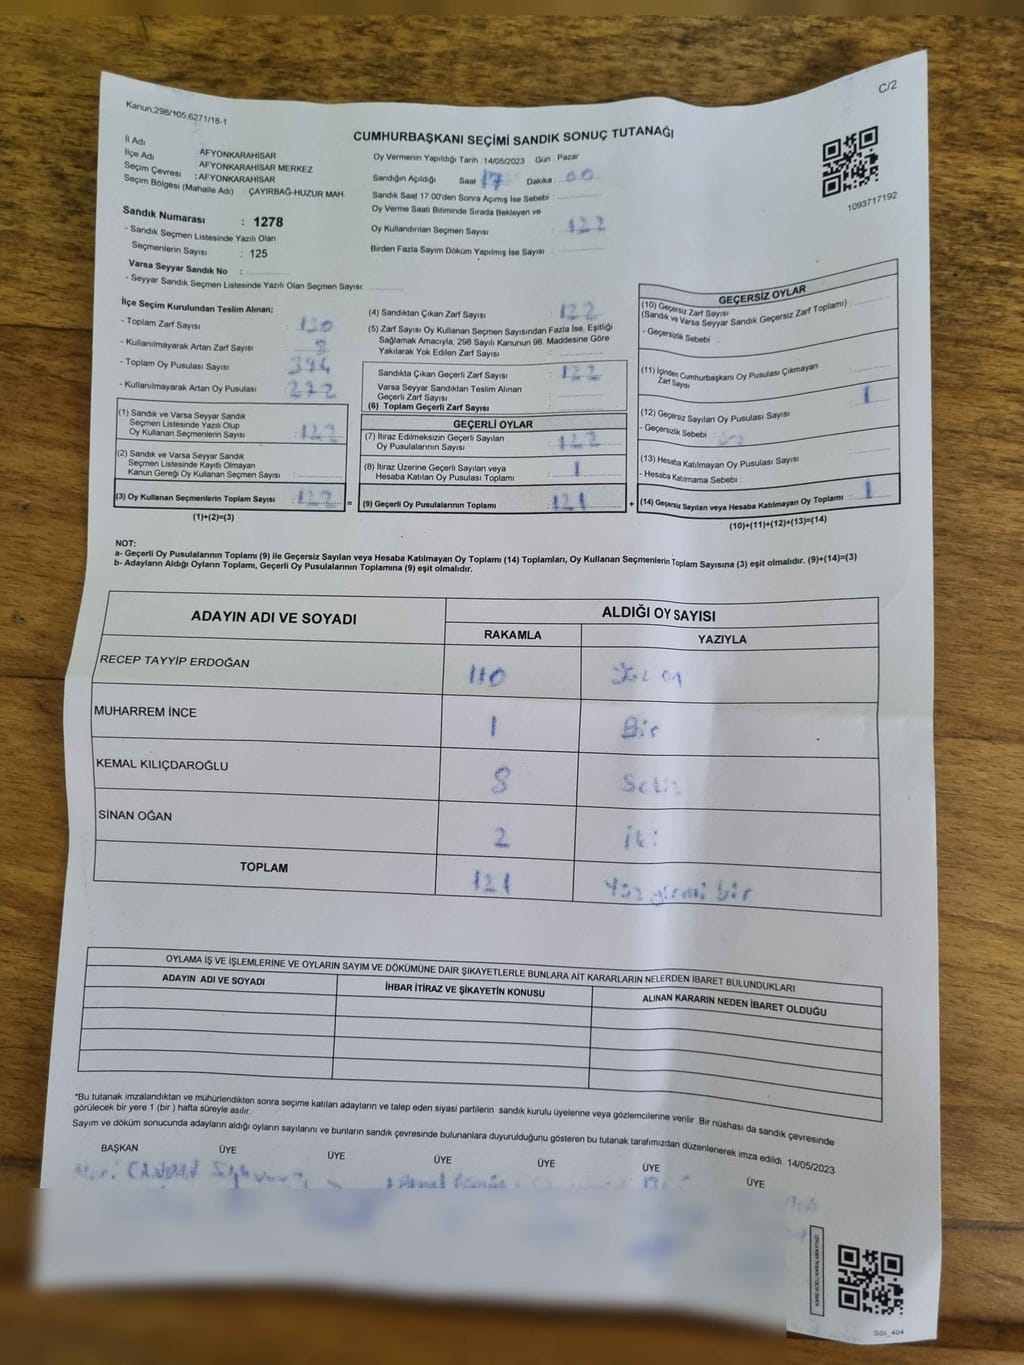 C/2
Kanun:298/105,6271/18-1
CUMHURBAŞKANI SEÇİMİ SANDIK SONUÇ TUTANAĞI
İl Adı : AFYONKARAHİSAR
İlçe Adı : AFYONKARAHİSAR MERKEZ
Seçim Çevresi : AFYONKARAHİSAR
Seçim Bölgesi (Mahalle Adı) : ÇAYIRBAĞ-HUZUR MAH.
Sandık Numarası : 1278
- Sandık Seçmen Listesinde Yazılı Olan
Seçmenlerin Sayısı : 125
Varsa Seyyar Sandık No :
- Seyyar Sandık Seçmen Listesinde Yazılı Olan Seçmen Sayısı:
Oy Vermenin Yapıldığı Tarih : 14/05/2023 Gün : Pazar
Sandığın Açıldığı Saat : 17 Dakika : 00
Sandık Saat 17:00'den Sonra Açımış İse Sebebi :
Oy Verme Saati Bitiminde Sırada Bekleyen ve
Oy Kullandırılan Seçmen Sayısı : 122
Birden Fazla Sayım Döküm Yapılmış İse Sayısı :
1093717192
İlçe Seçim Kurulundan Teslim Alınan;
- Toplam Zarf Sayısı : 130
- Kullanılmayarak Artan Zarf Sayısı : 8
- Toplam Oy Pusulası Sayısı : 394
- Kullanılmayarak Artan Oy Pusulası : 272
(1) Sandık ve Varsa Seyyar Sandık
Seçmen Listesinde Yazılı Olup
Oy Kullanan Seçmenlerin Sayısı : 122
(2) Sandık ve Varsa Seyyar Sandık
Seçmen Listesinde Kayıtlı Olmayan
Kanun Gereği Oy Kullanan Seçmen Sayısı :
(3) Oy Kullanan Seçmenlerin Toplam Sayısı : 122 =
(1)+(2)=(3)
(4) Sandıktan Çıkan Zarf Sayısı : 122
(5) Zarf Sayısı Oy Kullanan Seçmen Sayısından Fazla İse, Eşitliği
Sağlamak Amacıyla, 298 Sayılı Kanunun 98. Maddesine Göre
Yakılarak Yok Edilen Zarf Sayısı :
Sandıkta Çıkan Geçerli Zarf Sayısı : 122
Varsa Seyyar Sandıktan Teslim Alınan
Geçerli Zarf Sayısı :
(6) Toplam Geçerli Zarf Sayısı :
GEÇERLİ OYLAR
(7) İtiraz Edilmeksizin Geçerli Sayılan
Oy Pusulalarının Sayısı : 122
(8) İtiraz Üzerine Geçerli Sayılan veya
Hesaba Katılan Oy Pusulası Toplamı : 1
(9) Geçerli Oy Pusulalarının Toplamı : 121 +
GEÇERSİZ OYLAR
(10) Geçersiz Zarf Sayısı
(Sandık ve Varsa Seyyar Sandık Geçersiz Zarf Toplamı) :
- Geçersizlik Sebebi :
(11) İçinden Cumhurbaşkanı Oy Pusulası Çıkmayan
Zarf Sayısı
(12) Geçersiz Sayılan Oy Pusulası Sayısı : 1
- Geçersizlik Sebebi :
(13) Hesaba Katılmayan Oy Pusulası Sayısı :
- Hesaba Katılmama Sebebi :
(14) Geçersiz Sayılan veya Hesaba Katılmayan Oy Toplamı : 1
(10)+(11)+(12)+(13)=(14)
NOT:
a- Geçerli Oy Pusulalarının Toplamı (9) ile Geçersiz Sayılan veya Hesaba Katılmayan Oy Toplamı (14) Toplamları, Oy Kullanan Seçmenlerin Toplam Sayısına (3) eşit olmalıdır. (9)+(14)=(3)
b- Adayların Aldığı Oyların Toplamı, Geçerli Oy Pusulalarının Toplamına (9) eşit olmalıdır.
ADAYIN ADI VE SOYADI ALDIĞI OY SAYISI
RAKAMLA YAZIYLA
RECEP TAYYİP ERDOĞAN 110 Yüz on
MUHARREM İNCE 1 Bir
KEMAL KILIÇDAROĞLU 8 Sekiz
SİNAN OĞAN 2 İki
TOPLAM 121 Yüz yirmi bir
OYLAMA İŞ VE İŞLEMLERİNE VE OYLARIN SAYIM VE DÖKÜMÜNE DAİR ŞİKAYETLERLE BUNLARA AİT KARARLARIN NELERDEN İBARET BULUNDUKLARI
ADAYIN ADI VE SOYADI İHBAR İTİRAZ VE ŞİKAYETİN KONUSU ALINAN KARARIN NEDEN İBARET OLDUĞU
*Bu tutanak imzalandıktan ve mühürlendikten sonra seçime katılan adayların ve talep eden siyasi partilerin sandık kurulu üyelerine veya gözlemcilerine verilir. Bir nüshası da sandık çevresinde
görülecek bir yere 1 (bir ) hafta süreyle asılır.
Sayım ve döküm sonucunda adayların aldığı oyların sayılarını ve bunların sandık çevresinde bulunanlara duyurulduğunu gösteren bu tutanak tarafımızdan düzenlenerek imza edildi. 14/05/2023
BAŞKAN ÜYE ÜYE ÜYE ÜYE ÜYE ÜYE
SSI_404